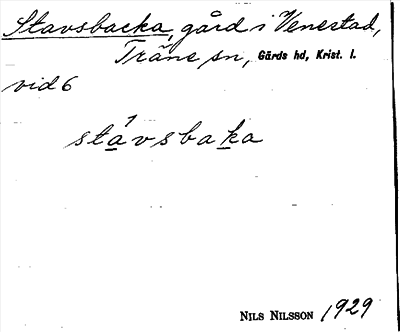 Stavsbacka, gård i Venestad,
Träne sn, Gärds hd, Krist. l.
vid 6
stàvsbaka
NILS NILSSON 1929